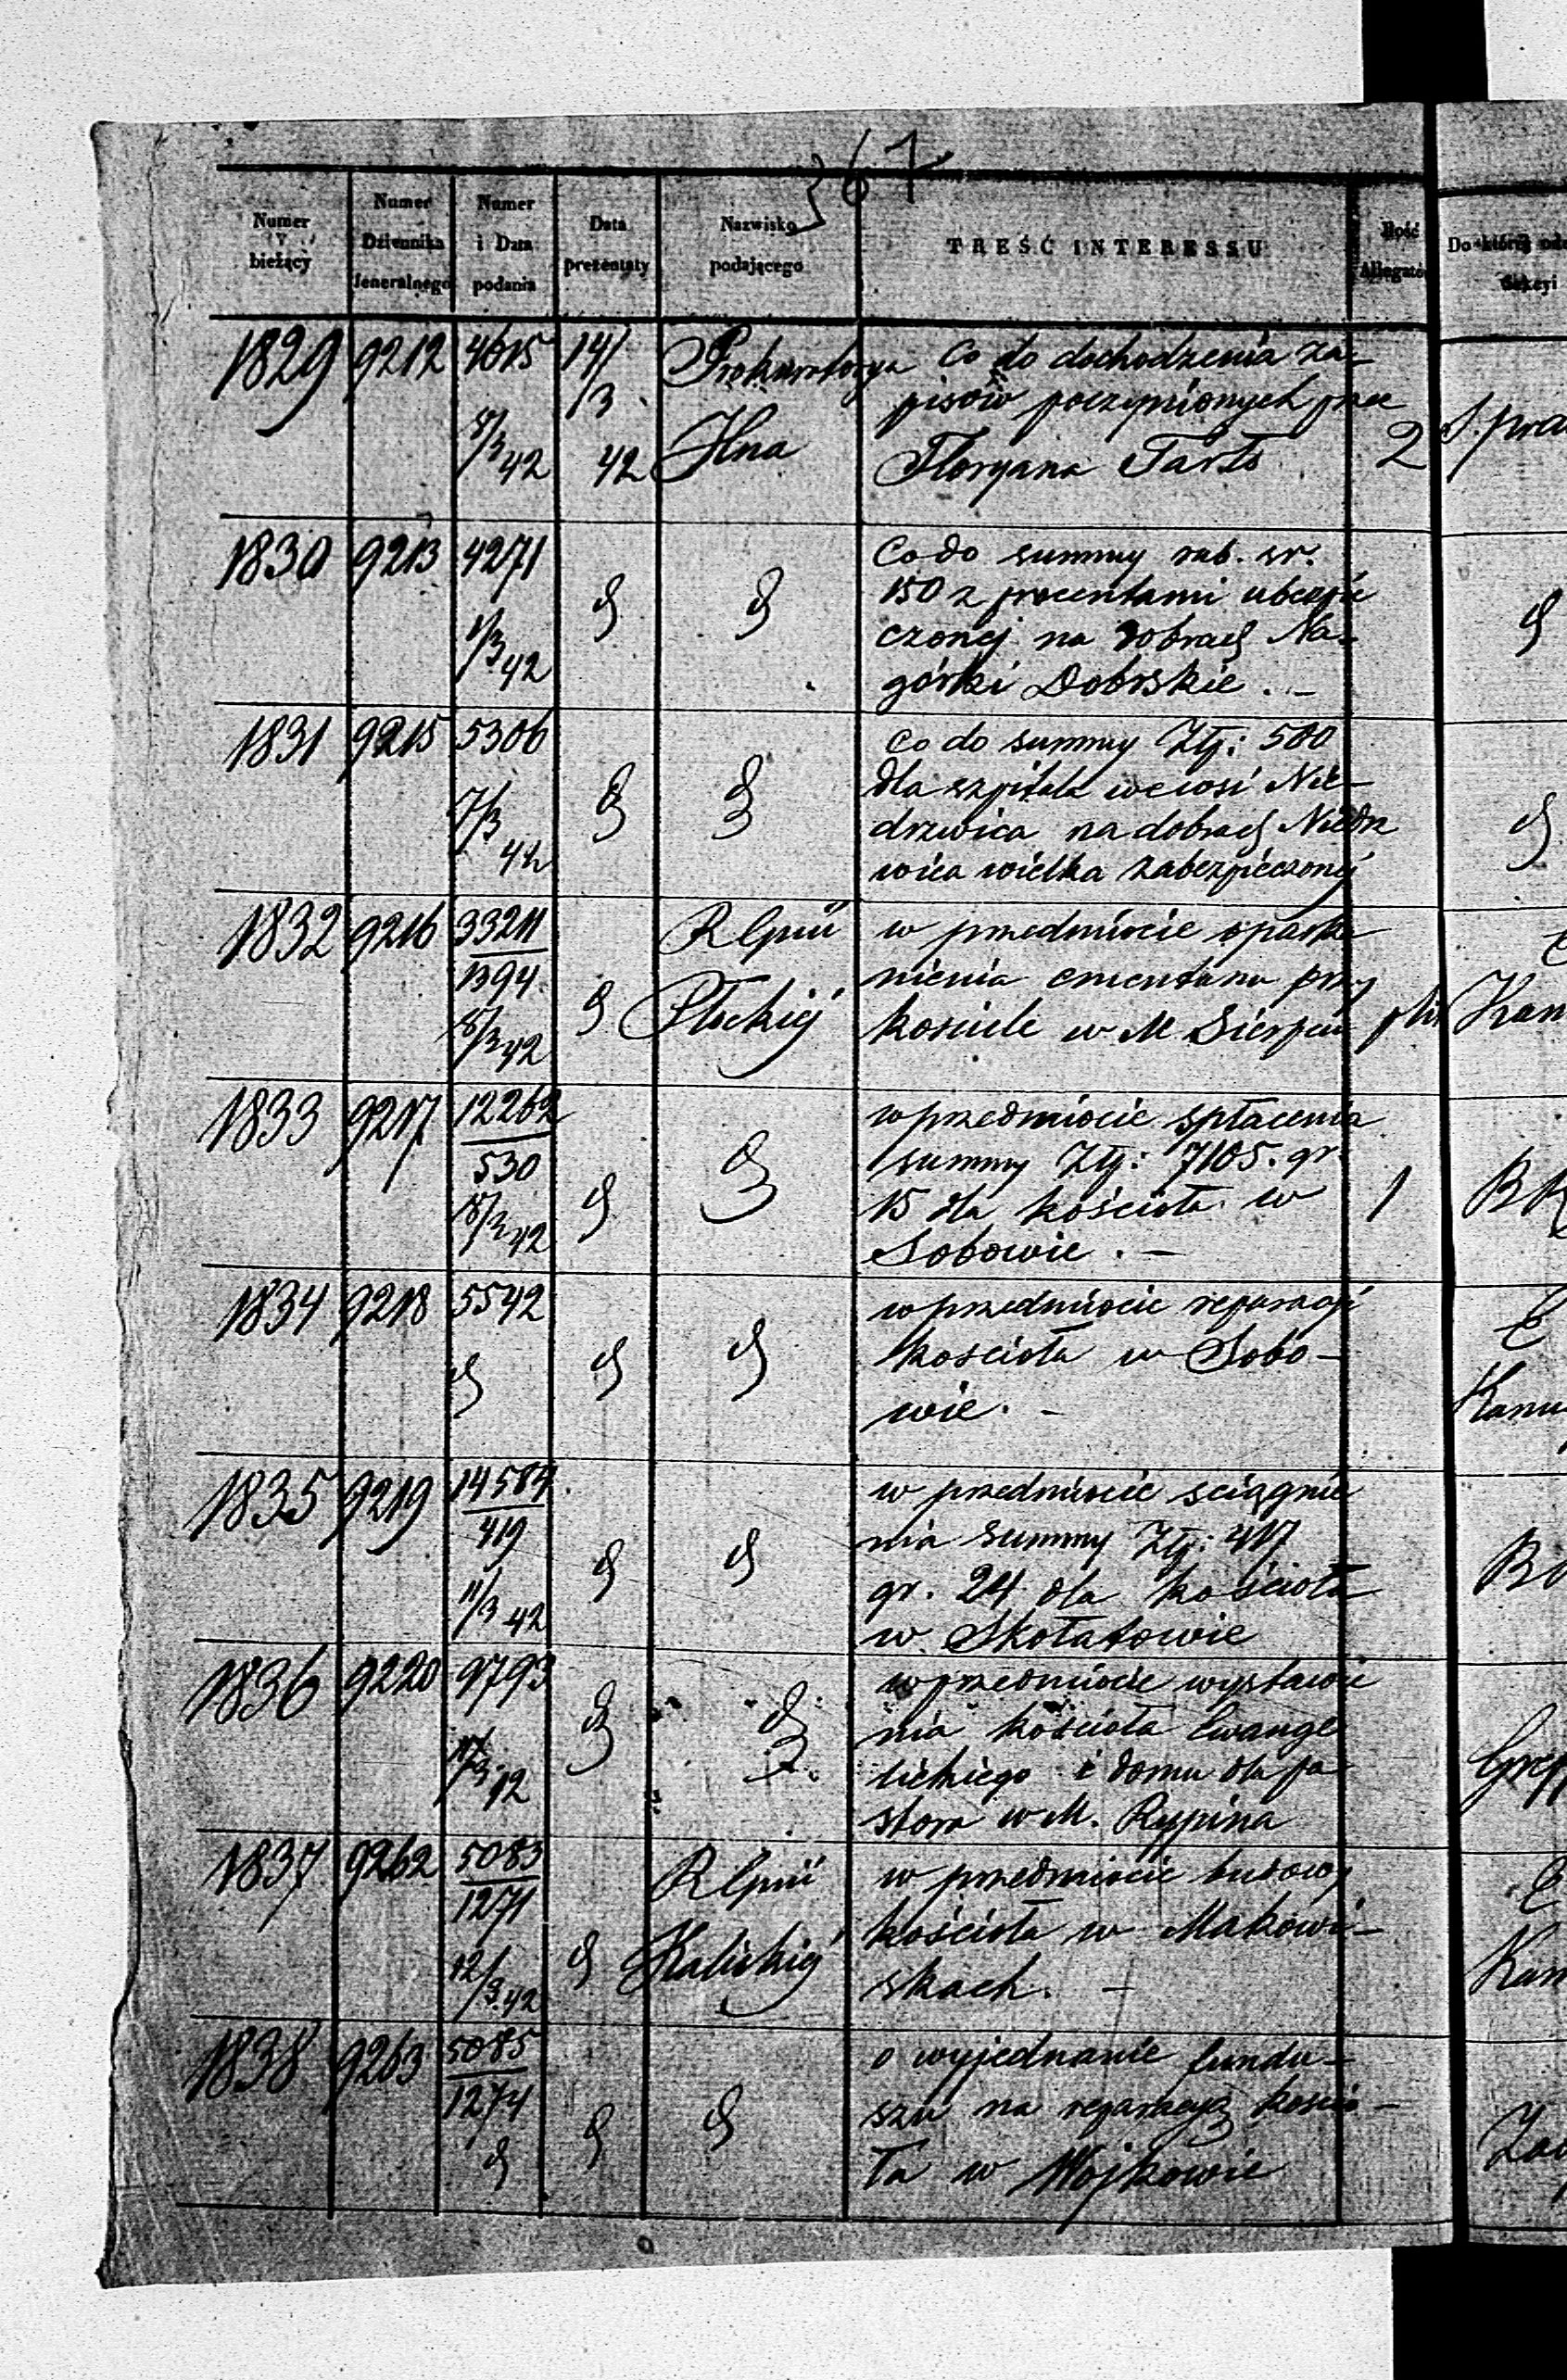 367
Numer bieżący
Numer Dziennika Jeneralnego
Numer i Data podania
Data prezentaty
Nazwisko podającego
TREŚĆ INTERESSU
Ilość Allegatów
Do której
Sekcyi
1829 9212 4615 14/3 42 Prokuratorya
8/3 42
Co do dochodzenia za-
pisów poczynionych prze
Floryana Tarło
2
1830 9213 4271
8/3 42
Co do summy rub. sr.
150 z procentami ubezpie
czonej na dobrach Na-
górki Dobrskie . –
1831 9215 5306
7/3 42
Co do summy Złp: 500
dla szpitala we wsi Nie-
drzwica na dobrach Niedrz
wica wielka zabezpieczonej
1832 9216 33211
1394
8/3 42
R Gpnii
Płockiej
w przedmiocie oparka
nienia cmentarza przy
kosciele w M Sierpcu
1833 9217 12262
530
8/3 42
w przedmiocie spłacenia
summy Złp: 7105. gr.
15 dla kościoła w
Sobowie . –
1
1834 9218 5542
w przedmiocie reparacji
kosciola w Sobo-
wie. –
1835 9219 14584
419
11/3 42
w przedmiocie sciągnie
nia summy Złp: 417
gr. 24 dla kościoła
w Skołatowie
1836 9220 9793
w przedmiocie wystawie
nia kościoła Ewange
lickiego i domu dla pa
stora w M. Rypina
1837 9262 5083
1271
12/3 42
R Gpnii
Kaliskiej
w przedmiocie budowy
kościoła w Makowi-
skach. –
1838 9263 5085
1274
o wyjednanie fundu-
szu na reparacyą koscio-
ła w Wojkowie